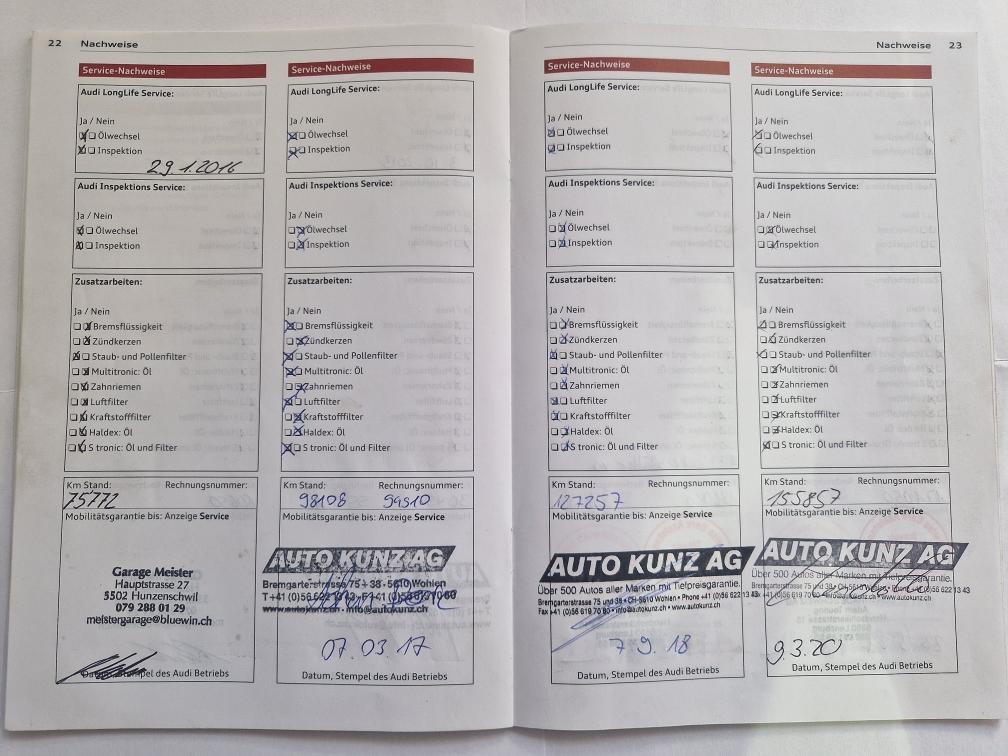 22 Nachweise
Service-Nachweise
Audi LongLife Service:
Ja / Nein
Ölwechsel
Inspektion
29.1.2016
Audi Inspektions Service:
Ja / Nein
Ölwechsel
Inspektion
Zusatzarbeiten:
Ja / Nein
Bremsflüssigkeit
Zündkerzen
Staub- und Pollenfilter
Multitronic: Öl
Zahnriemen
Luftfilter
Kraftstofffilter
Haldex: Öl
S tronic: Öl und Filter
Km Stand: Rechnungsnummer:
75772
Mobilitätsgarantie bis: Anzeige Service
Garage Meister
Hauptstrasse 27
5502 Hunzenschwil
079 288 01 29
meistergarage@bluewin.ch
Datum, Stempel des Audi Betriebs
Service-Nachweise
Audi LongLife Service:
Ja / Nein
Ölwechsel
Inspektion
Audi Inspektions Service:
Ja / Nein
Ölwechsel
Inspektion
Zusatzarbeiten:
Ja / Nein
Bremsflüssigkeit
Zündkerzen
Staub- und Pollenfilter
Multitronic: Öl
Zahnriemen
Luftfilter
Kraftstofffilter
Haldex: Öl
S tronic: Öl und Filter
Km Stand: Rechnungsnummer:
98108 99510
Mobilitätsgarantie bis: Anzeige Service
AUTO KUNZ AG
Bremgarterstrasse 75 + 38 - 5610 Wohlen
www.autokunz.ch - info@autokunz.ch
07.03.17
Datum, Stempel des Audi Betriebs
Nachweise 23
Service-Nachweise
Audi LongLife Service:
Ja / Nein
Ölwechsel
Inspektion
Audi Inspektions Service:
Ja / Nein
Ölwechsel
Inspektion
Zusatzarbeiten:
Ja / Nein
Bremsflüssigkeit
Zündkerzen
Staub- und Pollenfilter
Multitronic: Öl
Zahnriemen
Luftfilter
Kraftstofffilter
Haldex: Öl
S tronic: Öl und Filter
Km Stand: Rechnungsnummer:
127257
Mobilitätsgarantie bis: Anzeige Service
AUTO KUNZ AG
Über 500 Autos aller Marken mit Tiefpreisgarantie.
Bremgarterstrasse 75 und 38 • CH-5610 Wohlen • Phone +41 (0)56 622 13 43
Fax +41 (0)56 619 70 80 • info@autokunz.ch • www.autokunz.ch
7.9.18
Datum, Stempel des Audi Betriebs
Service-Nachweise
Audi LongLife Service:
Ja / Nein
Ölwechsel
Inspektion
Audi Inspektions Service:
Ja / Nein
Ölwechsel
Inspektion
Zusatzarbeiten:
Ja / Nein
Bremsflüssigkeit
Zündkerzen
Staub- und Pollenfilter
Multitronic: Öl
Zahnriemen
Luftfilter
Kraftstofffilter
Haldex: Öl
S tronic: Öl und Filter
Km Stand: Rechnungsnummer:
155857
Mobilitätsgarantie bis: Anzeige Service
AUTO KUNZ AG
Über 500 Autos aller Marken mit Tiefpreisgarantie.
Bremgarterstrasse 75 und 38 • CH-5610 Wohlen • Phone +41 (0)56 622 13 43
9.3.20
Datum, Stempel des Audi Betriebs